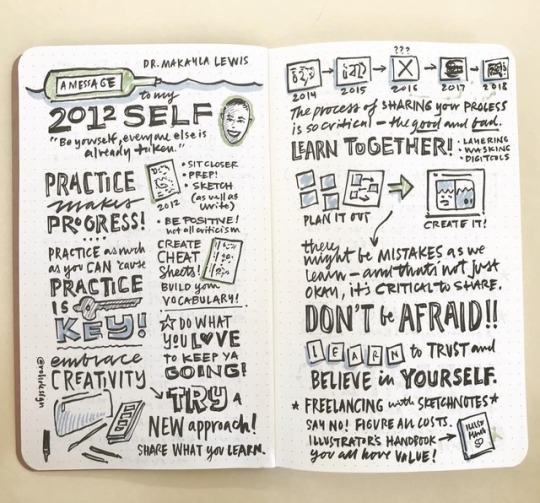 DR. MAKAYLA LEWIS
A MESSAGE
to my
2012 SELF
"Be yourself, everyone else is
already taken."
PRACTICE
makes
PROGRESS!
2012
• SIT CLOSER
• PREP!
• SKETCH
(as well as
write)
• BE POSITIVE!
not all criticism
PRACTICE as much
as you CAN 'cause
PRACTICE
IS
KEY!
CREATE
CHEAT
Sheets!
BUILD your
VOCABULARY!
embrace
CREATIVITY
☆ DO WHAT
YOU LOVE
TO KEEP YA
GOING!
TRY A
NEW approach!
SHARE WHAT YOU LEARN.
???
2014 2015 2016 2017 2018
The process of SHARING your PROCESS
is so critical – the good and bad.
LEARN TOGETHER!
• LAYERING
• MASKING
• DIGITOOLS
PLAN IT OUT
CREATE IT!
there
might be MISTAKES as we
learn – and that's not just
OKAY, it's CRITICAL to SHARE.
DON'T be AFRAID!!
LEARN to TRUST and
BELIEVE in YOURSELF.
* FREELANCING with SKETCHNOTES *
SAY NO! FIGURE ALL COSTS.
ILLUSTRATOR'S HANDBOOK
you all have VALUE!